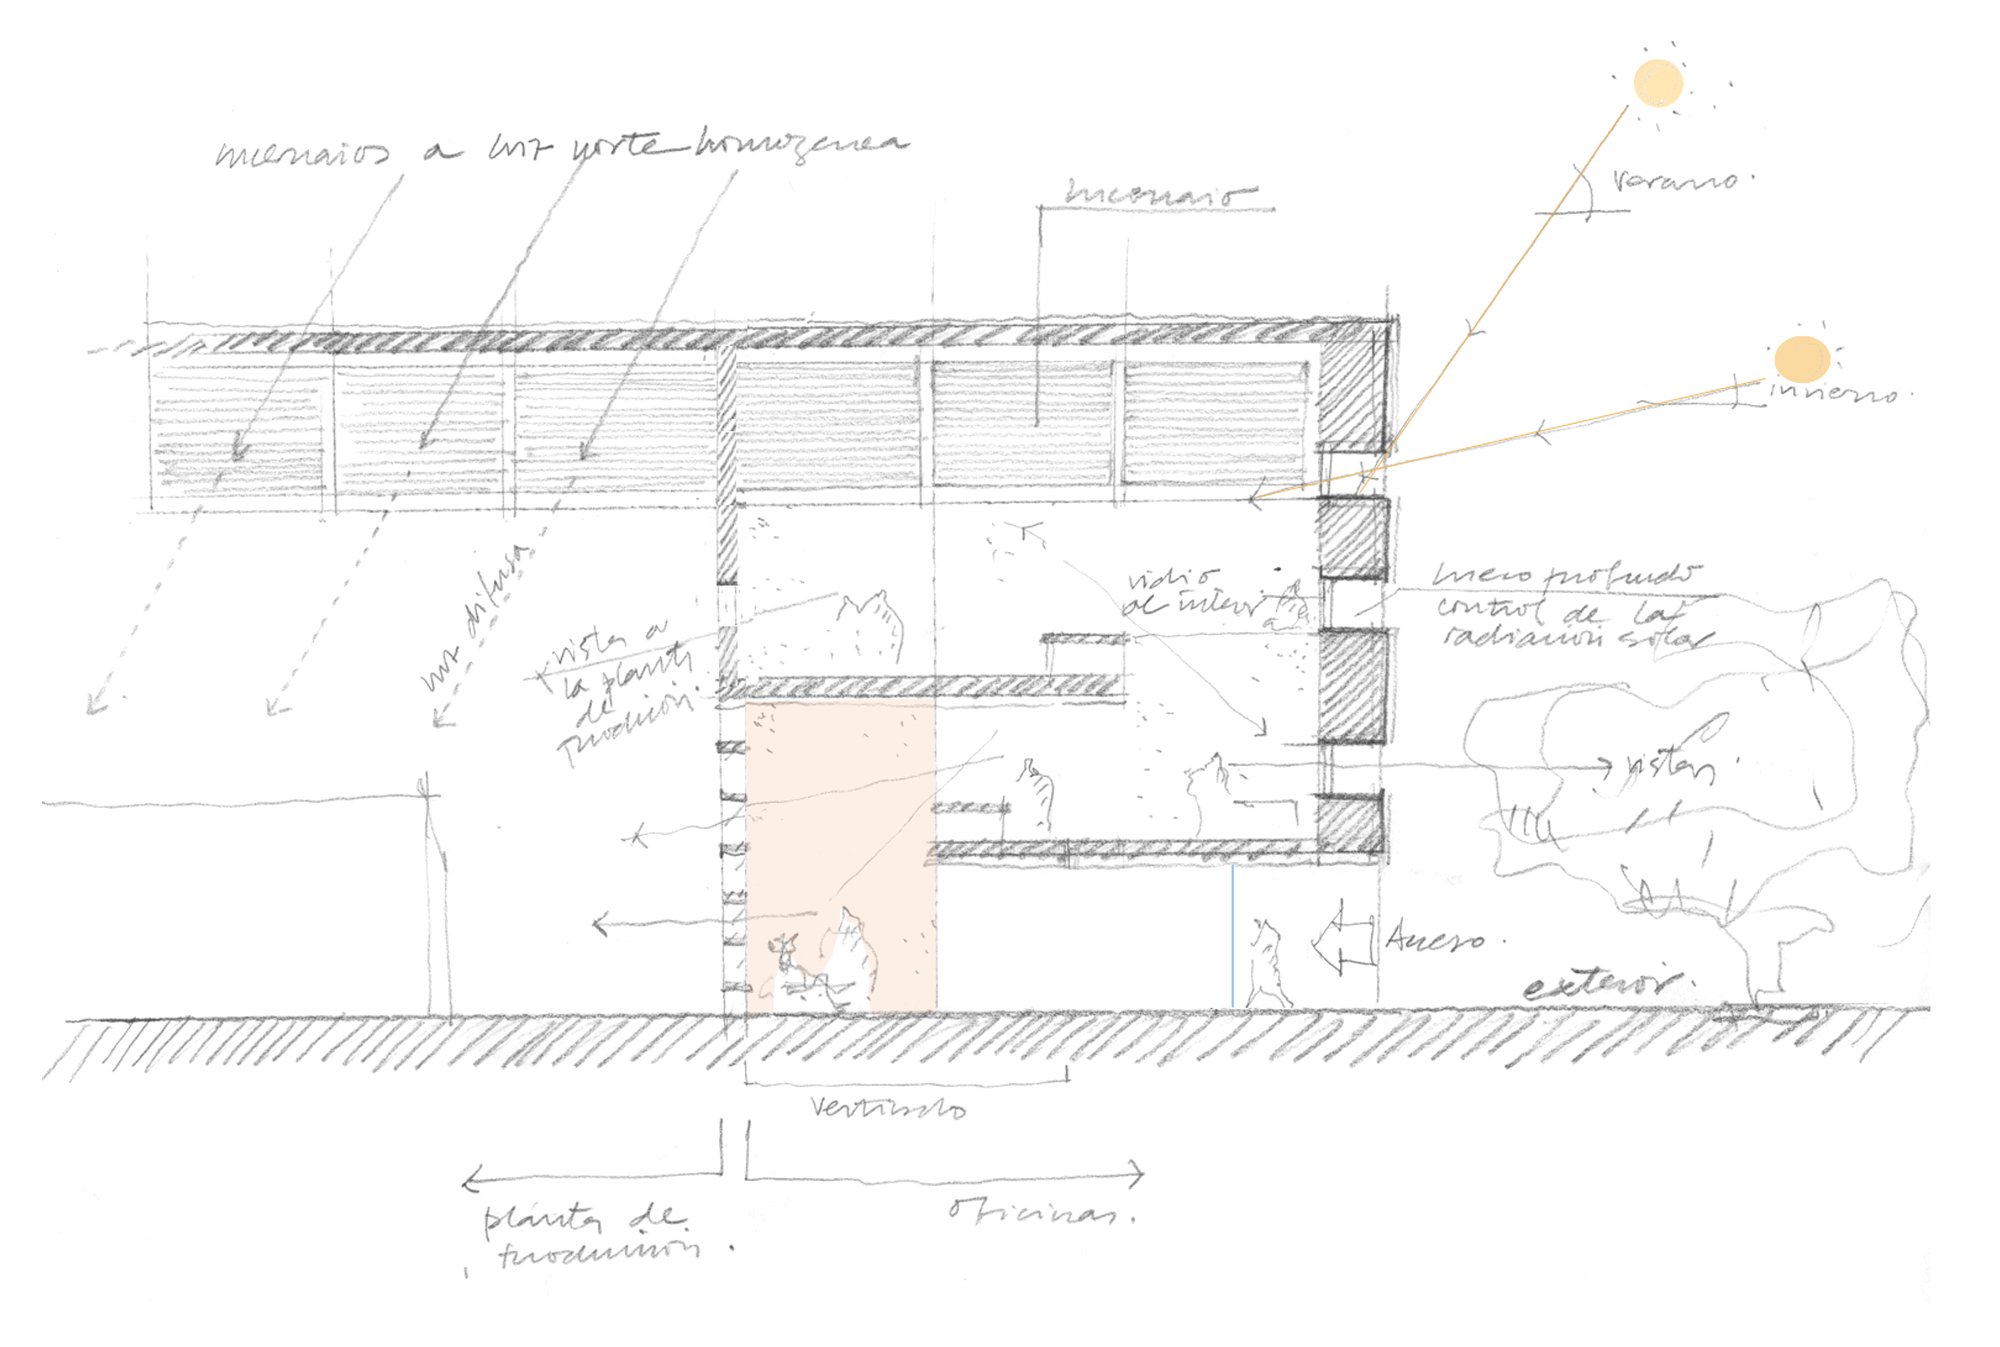 lucernarios a luz norte homogenea
lucernario
verano.
invierno.
luz difusa
vistas a
la planta
de
producción.
vidrio
al interior
hueco profundo
control de la
radiación solar
vistas.
Acceso.
exterior.
vestíbulo
planta de
producción.
oficinas.